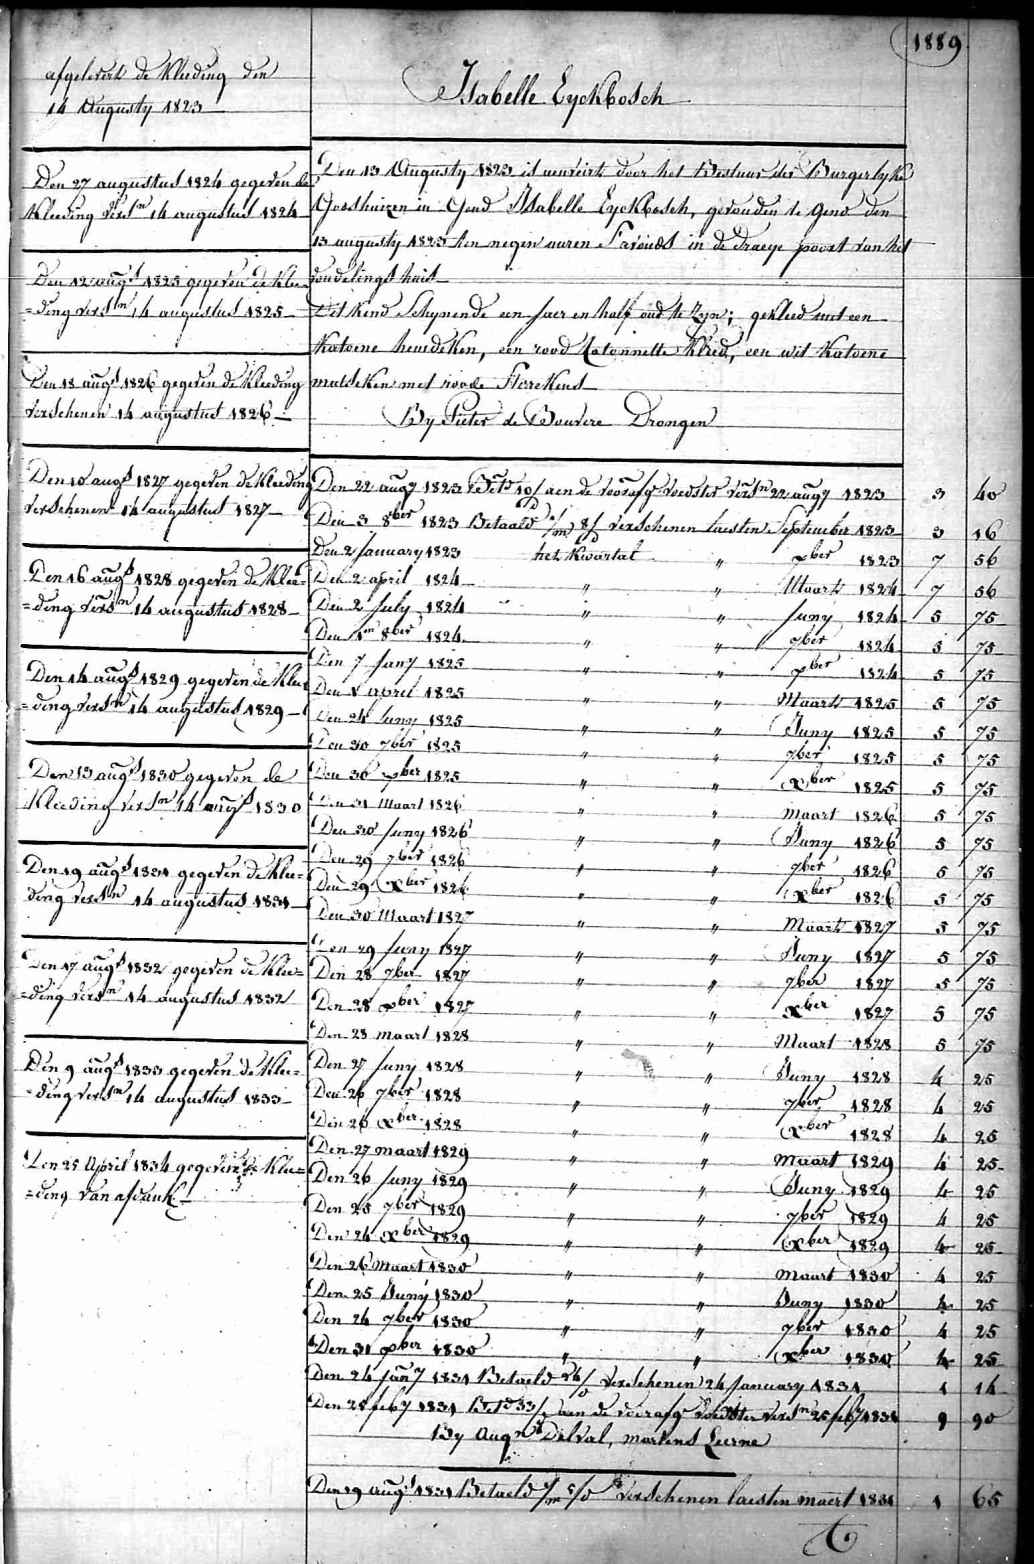 1889
afgelevert de Kleeding den
14 Augusty 1823
Isabelle Eyckbosch
Den 27 augustus 1824 gegeven de
Kleeding vers.n 14 augustus 1824
Den 12 aug.s 1825 gegeven de Klee-
=ding vers.n 14 augustus 1825
Den 18 aug.s 1826 gegeven de Kleeding
verschenen 14 augustus 1826
Den 10 aug.s 1827 gegeven de Kleeding
verschenen 14 augustus 1827
Den 16 aug.s 1828 gegeven de Klee=
=ding vers.n 14 augustus 1828
Den 14 aug.s 1829 gegeven de Klee
=ding vers.n 14 augustus 1829
Den 13 aug.s 1830 gegeven de
Kleeding vers.n 14 aug.s 1830
Den 19 aug.s 1831 gegeven de Klee=
ding vers.n 14 augustus 1831
Den 17 aug.s 1832 gegeven de Klee=
=ding vers.n 14 augustus 1832
Den 9 aug.s 1833 gegeven de Klee=
=ding vers.n 14 augustus 1833
Den 25 April 1834 gegeven de Klee=
=ding van afdank
Den 13 Augusty 1823 is aenveirt door het Bestuer der Burgerlyke
Godshuizen in Gend Isabelle Eyckbosch, gevonden te Gend den
13 augusty 1823 ten negen uuren s'avonds in de draeye poort van het
vondelings huis
Dit Kind Schynende een jaer en half oud te Zyn; gekleed met een
Katoene hemdeken, een rood Catonnette Kleed, een wit Katoene
mutseken met roode
By Pieter de Bouvere Drongen
Den 22 aug.y 1823 Bet.d 10/ aen de voorafg. voedster vers.n 22 aug.y 1823 3 40
Den 3 8ber 1823 Betaald 8/ verschenen laesten September 1823 3 16
Den 2 January 1823 het Kwartal " xber 1823 7 56
Den 2 april 1824 " " Maart 1824 7 56
Den 2 July 1824 " " Juny 1824 5 75
Den 1.n 8ber 1824 " " 7ber 1824 5 75
Den 7 Jany 1825 " " xber 1824 5 75
Den 1 april 1825 " " Maart 1825 5 75
Den 24 Juny 1825 " " Juny 1825 5 75
Den 30 7ber 1825 " " 7ber 1825 5 75
Den 30 xber 1825 " " xber 1825 5 75
Den 31 Maart 1826 " " Maart 1826 5 75
Den 30 Juny 1826 " " Juny 1826 5 75
Den 29 7ber 1826 " " 7ber 1826 5 75
Den 29 xber 1826 " " xber 1826 5 75
Den 30 Maart 1827 " " Maart 1827 5 75
Den 29 Juny 1827 " " Juny 1827 5 75
Den 28 7ber 1827 " " 7ber 1827 5 75
Den 28 xber 1827 " " xber 1827 5 75
Den 28 maart 1828 " " Maart 1828 5 75
Den 27 Juny 1828 " " Juny 1828 4 25
Den 26 7ber 1828 " " 7ber 1828 4 25
Den 26 xber 1828 " " xber 1828 4 25
Den 27 maart 1829 " " Maart 1829 4 25
Den 26 Juny 1829 " " Juny 1829 4 25
Den 25 7ber 1829 " " 7ber 1829 4 25
Den 24 xber 1829 " " xber 1829 4 25
Den 26 Maart 1830 " " Maart 1830 4 25
Den 25 Juny 1830 " " Juny 1830 4 25
Den 24 7ber 1830 " " 7ber 1830 4 25
Den 31 xber 1830 " " xber 1830 4 25
Den 24 Jan.y 1831 Betaeld verschenen 24 January 1831 1 14
Den 28 feb.y 1831 Bet.d 33/ aen de voorafg. voedster vers.n 25 feb.y 1831 9 90
By Delval, Martens Leerne
Den 19 aug.s 1831 Betaeld verschenen laesten maert 1831 1 65